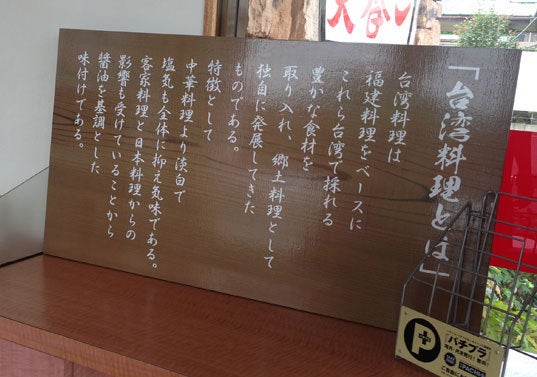 「台湾料理とは」
台湾料理は
福建料理をベースに
これら台湾で採れる
豊かな食材を
取り入れ、郷土料理として
独自に発展してきた
ものである。
特徴として
中華料理より淡白で
塩気も全体に抑え気味である。
客家料理と日本料理からの
影響も受けていることから
醬油を基調とした
味付けである。
P
「パチプラ」